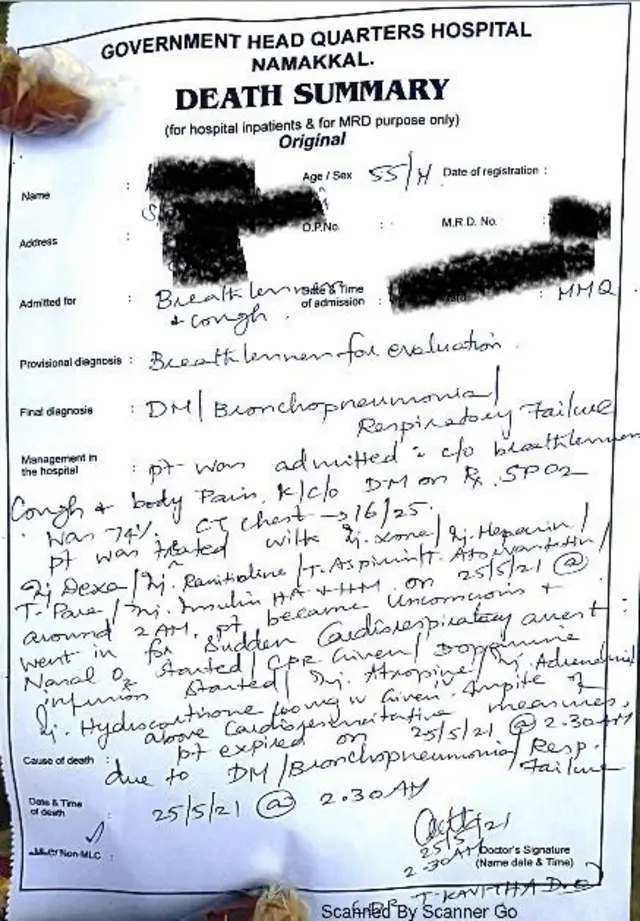 GOVERNMENT HEAD QUARTERS HOSPITAL
NAMAKKAL.
DEATH SUMMARY
(for hospital inpatients & for MRD purpose only)
Original
Name : Age / Sex 55/M Date of registration :
Address : O.P.No. : M.R.D. No. :
Admitted for : Breathlessness & cough. Date & Time of admission : MMQ
Provisional diagnosis : Breathlessness for evaluation.
Final diagnosis : DM/Bronchopneumonia/
Respiratory Failure
Management in the hospital : pt was admitted c c/o breathlessness
Cough & body Pain, K/c/o DM on Rx. SPO2
was 74%. CT Chest → 16/25.
pt was treated with Inj. Xone/Inj. Heparin/
Inj Dexa/Inj. Ranitidine/T. Aspirin/T. Atorvastatin/
T. Para/Inj. Insulin HA & HM on 25/5/21 @
around 2 AM. pt became Unconscious &
went in for Sudden Cardiorespiratory arrest.
Nasal O2 Started/CPR Given/Dopamine
infusion Started/Inj. Atropine/Inj. Adrenaline
Inj. Hydrocortisone 100mg iv Given. Inspite of
above Cardioresuscitative measures,
pt expired on 25/5/21 @ 2.30AM
Cause of death : due to DM/Bronchopneumonia/Resp.
Failure
Date & Time of death : 25/5/21 @ 2.30AM
MLC/ Non-MLC :
25/5/21
2.30AM
Doctor's Signature
(Name date & Time)
T. KAVITHA
Scanned By Scanner Go